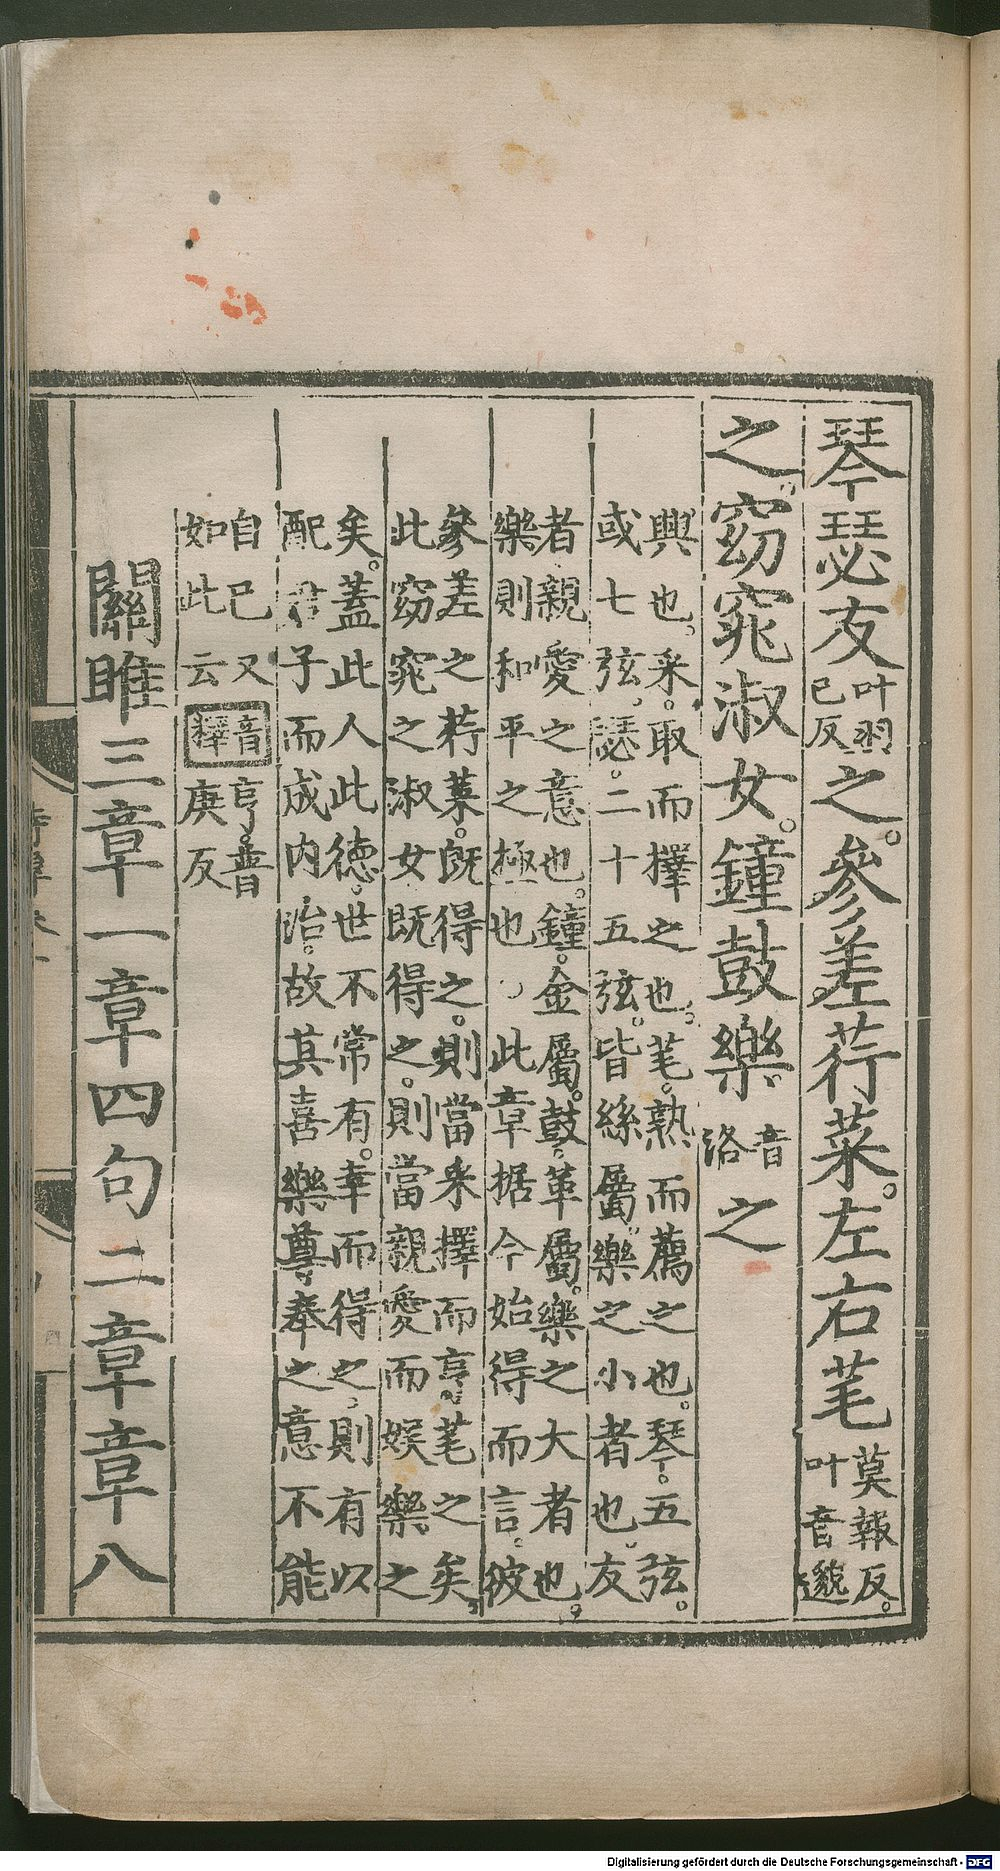 琴瑟友叶羽已反之。參差荇菜。左右芼莫報反。叶音邈
之。窈窕淑女。鐘鼓樂音洛之
興也。采。取而擇之也。芼。熟而薦之也。琴。五弦。
或七弦。瑟。二十五弦。皆絲屬。樂之小者也。友
者。親愛之意也。鐘。金屬。鼓。革屬。樂之大者也。
樂則和平之極也○此章据今始得而言。彼
參差之荇菜。旣得之。則當采擇而亨芼之矣。
此窈窕之淑女旣得之。則當親愛而娛樂之
矣。蓋此人此德。世不常有。幸而得之。則有以
配君子而成內治。故其喜樂尊奉之意不能
自已又
如此云
音釋
亨。普
庚反
關雎三章一章四句二章章八
Digitalisierung gefördert durch die Deutsche Forschungsgemeinschaft - DFG